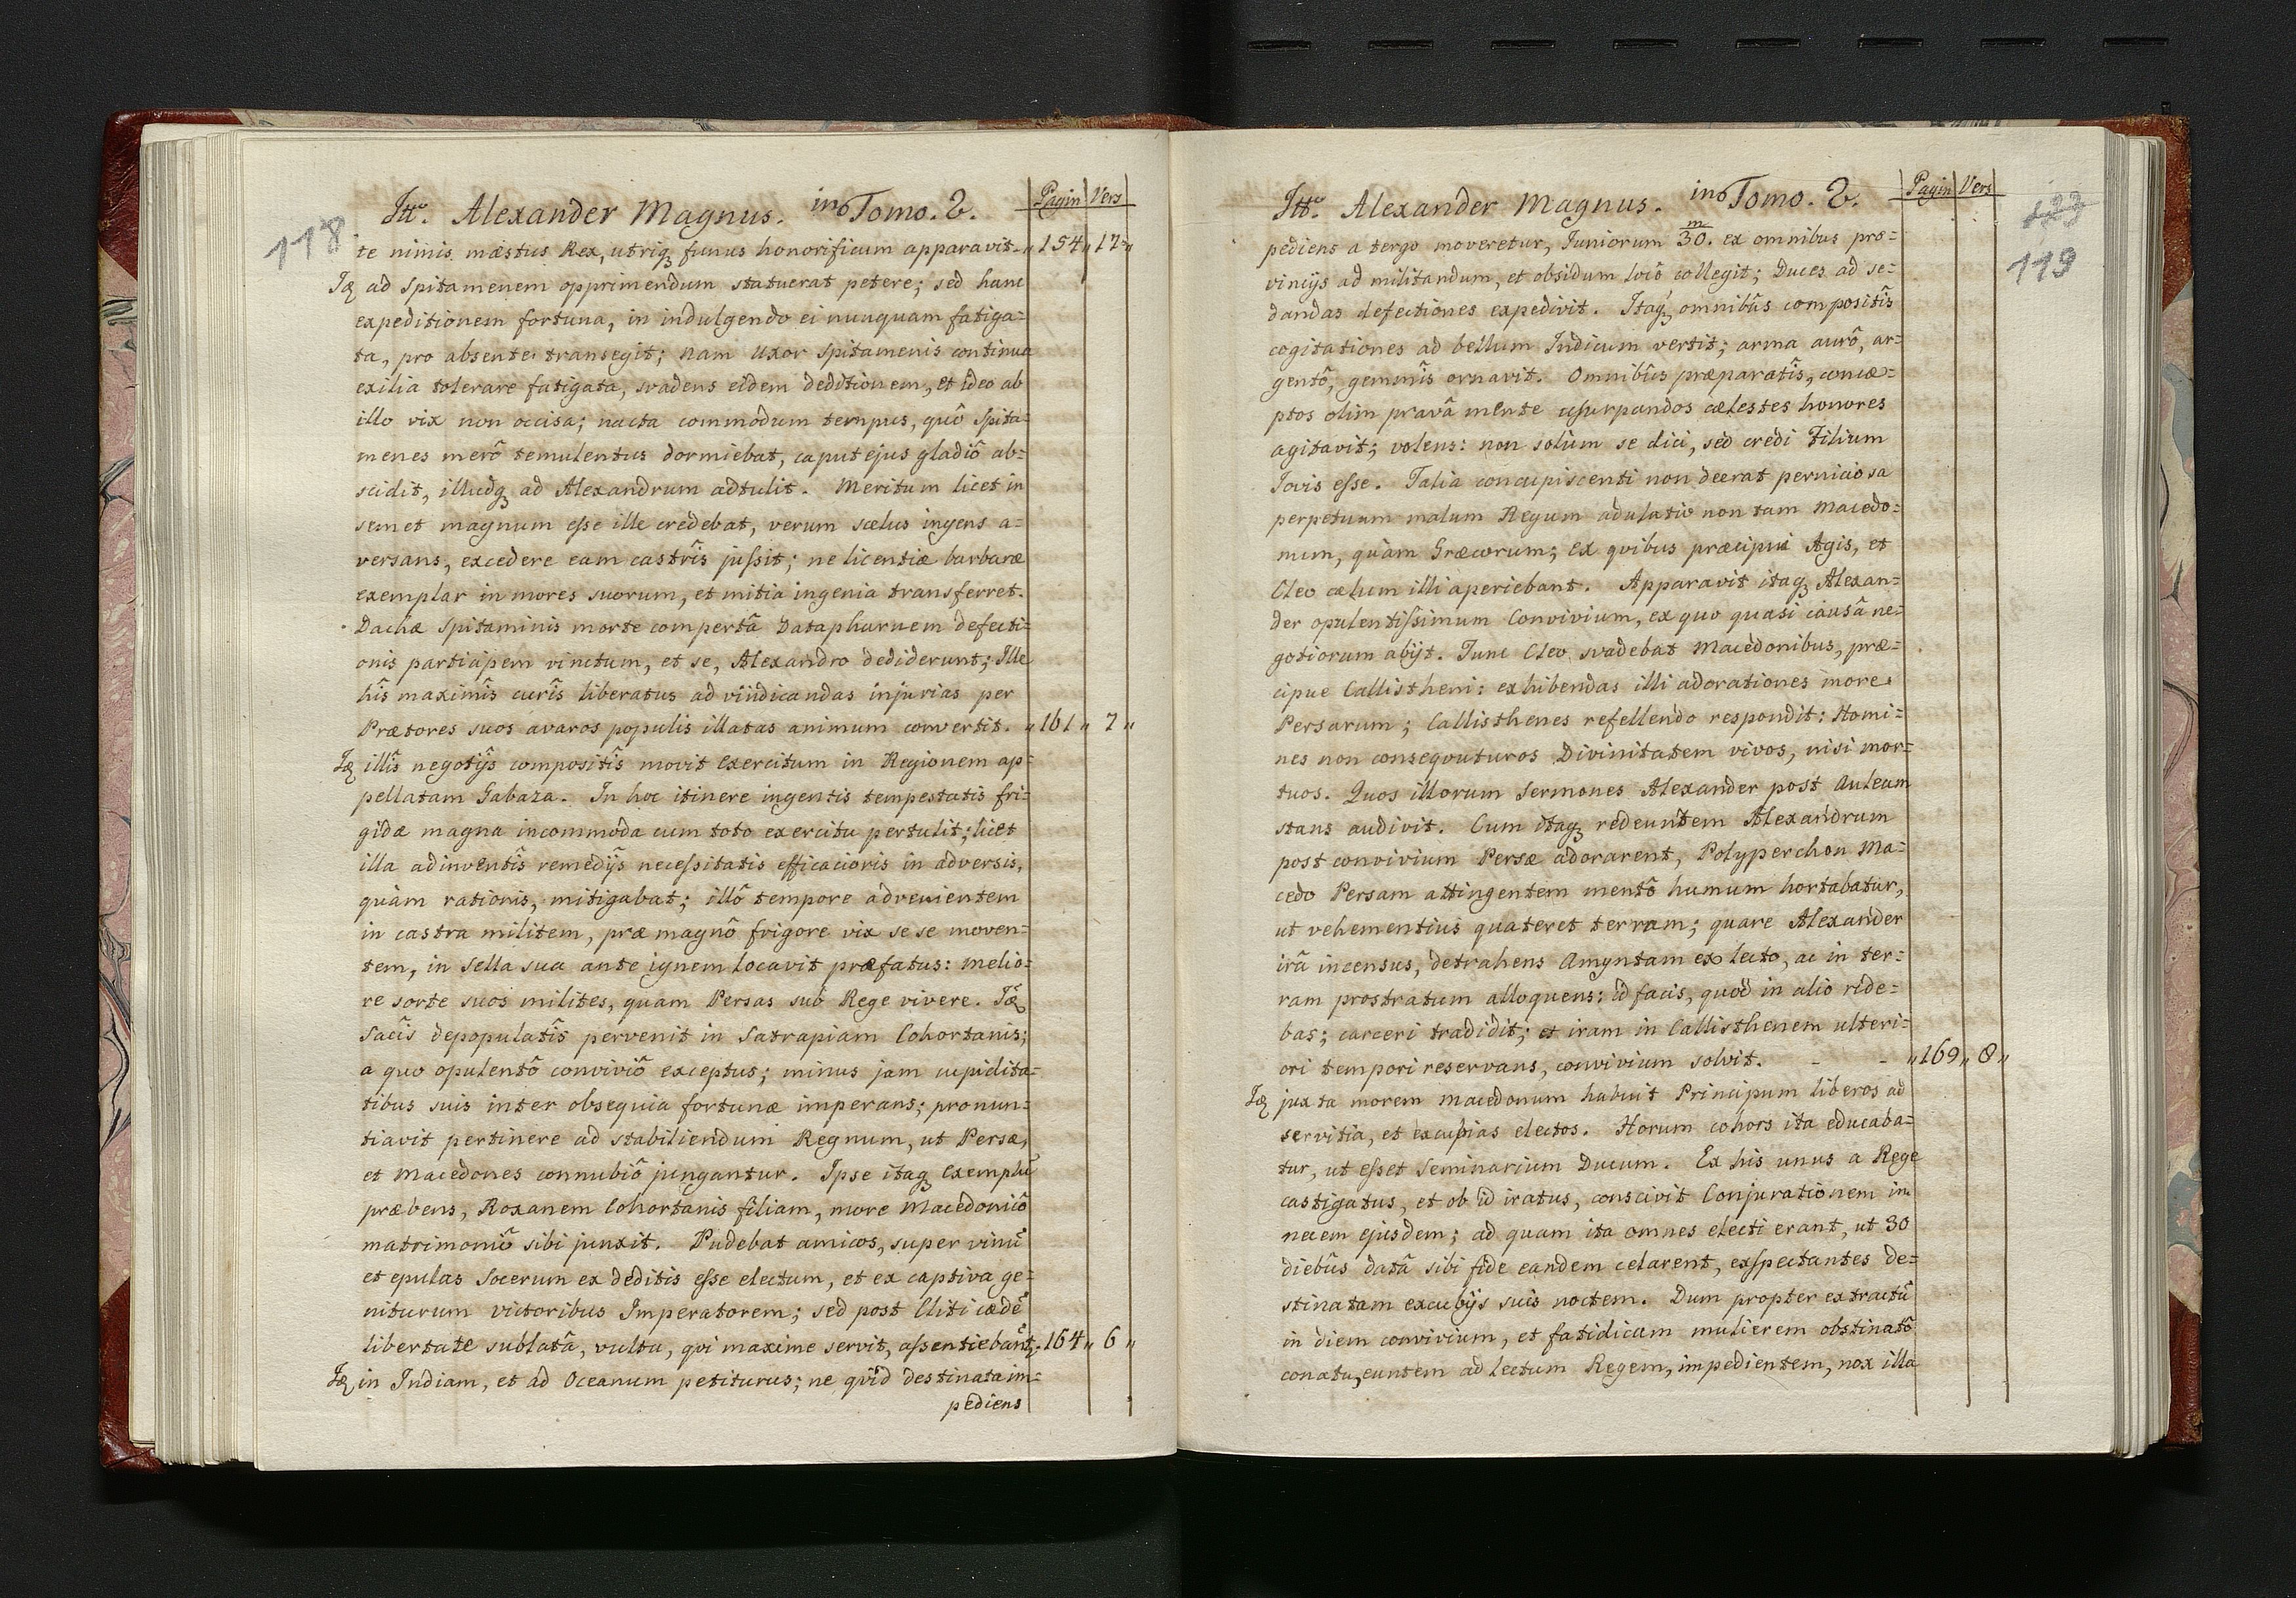 118
Itt̃o. Alexander Magnus. in Tomo. 2. Pagin Vers
te nimis mæstus Rex, utriq₃ funus honorificum apparavit „ 154 „ 17 „
Iq₃ ad Spitamenem opprimendum statuerat petere; sed hanc
expeditionem fortuna, in indulgendo ei nunquam fatiga=
ta, pro absente transegit; nam Uxor Spitamenis continua
exilia tolerare fatigata, svadens eidem deditionem, et ideo ab
illo vix non occisa; nacta commodum tempus, quô Spita=
menes merô temulentus dormiebat, caput ejus gladiô ab=
scidit, illudq₃ ad Alexandrum adtulit. Meritum licet in
semet magnum esse ille credebat, verum scelus ingens a=
versans, excedere eam castrîs jussit; ne licentiæ barbaræ
exemplar in mores suorum, et mitia ingenia transferret.
Dachæ Spitaminis morte compertâ Datapharnem defecti=
onis participem vinctum, et se, Alexandro dediderunt; Ille
hîs maximîs curîs liberatus ad vindicandas injurias per
Prætores suos avaros populis illatas animum convertit. „ 161 „ 7 „
Iq₃ illîs negotijs compositîs movit exercitum in Regionem ap=
pellatam Gabaza. In hoc itinere ingentis tempestatis fri=
gidæ magna incommoda cum toto exercitu pertulit; licet
illa adinventîs remedijs necessitatis efficacioris in adversis,
quàm rationis, mitigabat; illô tempore advenientem
in castra militem, præ magnô frigore vix se se moven=
tem, in sella sua ante ignem locavit præfatus: melio=
re sorte suos milites, quam Persas sub Rege vivere. Iq₃
Sacîs depopulatîs pervenit in Satrapiam Cohortanis;
a quo opulentô conviviô exceptus; minus jam cupidita=
tibus suis inter obsequia fortunæ imperans; pronun=
tiavit pertinere ad stabiliendum Regnum, ut Persæ,
et Macedones connubiô jungantur. Ipse itaq₃ exemplũ
præbens, Roxanem Cohortanis filiam, more Macedonicô
matrimoniô sibi junxit. Pudebat amicos, super vinũ
et epulas Socerum ex deditis esse electum, et ex captiva ge=
niturum victoribus Imperatorem; sed post Cliti cædẽ
libertate sublatâ, vultu, qvi maxime servit, assentiebant̃. 164 „ 6 „
Iq₃ in Indiam, et ad Oceanum petiturus; ne qvid destinata im=
pediens
123
119
Itt̃o. Alexander Magnus. in Tomo. 2. Pagin Vers
pediens a tergo moveretur, Juniorum 30. m ex omnibus pro=
vincijs ad militandum, et obsidum locô collegit; Duces ad se=
dandas defectiones expedivit. Itaq₃ omnibûs compositîs
cogitationes ad bellum Indicum vertit; arma aurô, ar=
gentô, gemmîs ornavit. Omnibûs præparatîs, conce=
ptos olim pravâ mente usurpandos cælestes honores
agitavit; volens: non solùm se dici, sed credi Filium
Jovis esse. Talia concupiscenti non deerat perniciosa
perpetuum malum Regum adulatio non tam Macedo=
num, quàm Græcorum; ex qvibus præcipui Agis, et
Cleo cælum illi aperiebant. Apparavit itaq₃ Alexan=
der opulentissimum Convivium, ex quo quasi causâ ne=
gotiorum abijt. Tunc Cleo svadebat Macedonibus, præ=
cipue Callistheni: exhibendas illi adorationes more
Persarum; Callisthenes refellendo respondit: Homi=
nes non conseqvuturos Divinitatem vivos, nisi mor=
tuos. Quos illorum Sermones Alexander post Auleam
stans audivit. Cum itaq₃ redeuntem Alexandrum
post convivium Persæ adorarent, Polyperchon Ma=
cedo Persam attingentem mentô humum hortabatur,
ut vehementius quateret terram; quare Alexander
irâ incensus, detrahens Amyntam ex lecto, ac in ter=
ram prostratum alloquens: id facis, quod in alio ride=
bas; carceri tradidit; et iram in Callisthenem ulteri=
ori tempori reservans, convivium solvit. - - „ 169 „ 8 „
Iq₃ juxta morem Macedonum habuit Principum liberos ad
servitia, et excubias electos. Horum cohors ita educaba=
tur, ut esset Seminarium Ducum. Ex his unus a Rege
castigatus, et ob id iratus, conscivit Conjurationem in
necem ejusdem; ad quam ita omnes electi erant, ut 30
diebûs datâ sibi fide eandem celarent, exspectantes de=
stinatam excubijs suis noctem. Dum propter extractũ
in diem convivium, et fatidicam mulierem obstinatô
conatu, euntem ad lectum Regem, impedientem, nox illa